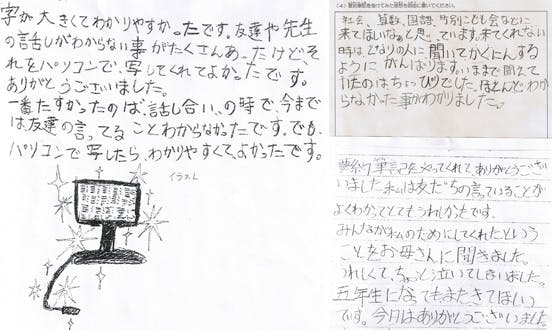 字が大きくてわかりやすかったです。友達や先生
の話しがわからない事がたくさんあったけど、そ
れをパソコンで、写してくれてよかったです。
ありがとうございました。
一番たすかったのは、話し合い、の時で、今まで
は友達の言ってることわからなかったです。でも、
パソコンで写したら、わかりやすくて、よかったです。
イラスト
社会、算数、国語、特別こども会などに
来てほしいなぁと思っています。来てくれない
時はとなりの人に聞いてかくにんする
ようにがんばります。いままで聞えて
いたのはちょっぴりでした。ほとんどわか
らなかった事がわかりました。
要約筆記をやってくれて、ありがとうござい
いました。私は友だちの言っていることが
よくわかってとてもうれしかったです。
みんなが私のためにしてくれたという
ことをお母さんに聞きました。
うれしくて、ちょっと泣いてしまいました。
五年生になってもまたきてほしい
です。今日はありがとうございました。